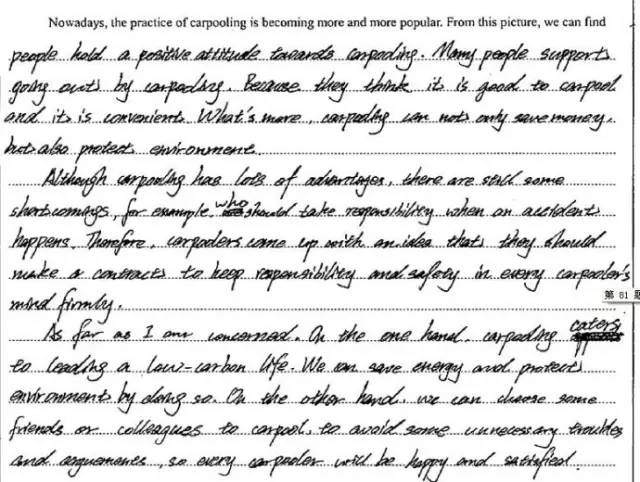 Nowadays, the practice of carpooling is becoming more and more popular. From this picture, we can find
people hold a positive attitude towards carpooling. Many people support
going out by carpooling. Because they think it is good to carpool
and it is convenient. What's more, carpooling can not only save money,
but also protect environment.
Although carpooling has lots of advantages, there are still some
shortcomings, for example, who should take responsibility when an accident
happens. Therefore, carpoolers come up with an idea that they should
make a contract to keep responsibility and safety in every carpooler's
第 81 题
mind firmly.
As far as I am concerned. On the one hand, carpooling caters
to leading a low-carbon life. We can save energy and protect
environment by doing so. On the other hand, we can choose some
friends or colleagues to carpool, to avoid some unnecessary troubles
and arguements, so every carpooler will be happy and satisfied.